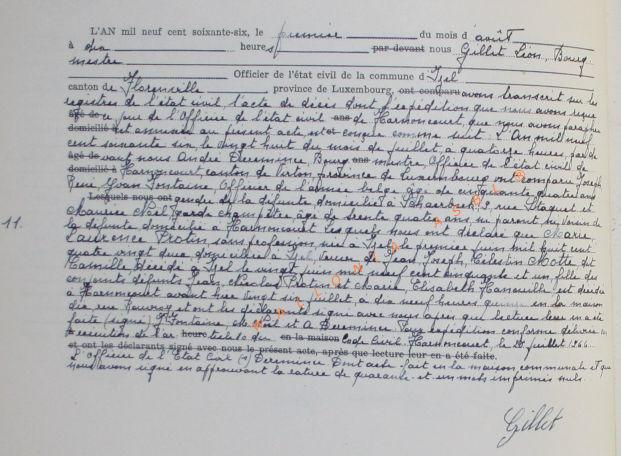 L'AN mil neuf cent soixante-six, le premier du mois d'août
à dix heures par-devant nous Gillet Léon, Bourg
mestre Officier de l'état civil de la commune d'Izel
canton de Florenville, province de Luxembourg, ont comparu avons transcrit sur les
registres de l'état civil l'acte de décès dont l'expédition que nous avons reçue
âgé de ce jour de l'Officier de l'état civil ans de Harnoncourt, que nous avons paraphée
domicilié est annexée au présent acte, et conçue comme suit : L'An mil neuf
cent soixante six le vingt huit du mois de juillet, à quatorze heures, par de
âgé de vant nous André Deremince Bourg ans mestre Officier de l'état civil de
domicilié à Harnoncourt, canton de Virton province de Luxembourg ont comparu Joseph
René, Yvan Fontaine, Officier de l'armée belge âgé de cinquante quatre ans
Lesquels nous ont gendre de la défunte domicilié à Schaerbeek, rue et
Maurice Noël, garde champêtre, âgé de trente quatre ans, ni parent, ni voisin de
la défunte domicilié à Harnoncourt lesquels nous ont déclaré que Marie
11. Laurence Protin sans profession, née à Izel, le premier juin mil huit cent
quatre vingt deux, domiciliée à Izel, veuve de Jean Joseph, Célestin Motte dit
Camille décédé à Izel le vingt juin mil neuf cent cinquante et un fille des
conjoints défunts Jean, Nicolas Protin et Marie Elisabeth Hanouille est décédée
à Harnoncourt avant hier vingt six juillet, à dix neuf heures quinze en la maison
rue et ont les déclarants signé avec nous après que lecture leur en a été
faite (signé) Fontaine, M. Noël et A Deremince Pour expédition conforme délivrée en
exécution de l'ar heure ticle 80 du en la maison Code Civil. Harnoncourt, le 28 juillet 1966
et ont les déclarants signé avec nous le présent acte, après que lecture leur en a été faite.
L'Officier de l'Etat Civil (s) Deremince Dont acte fait en la maison communale et que
nous avons signé en approuvant la rature de quarante et un mots imprimés nuls.
Gillet